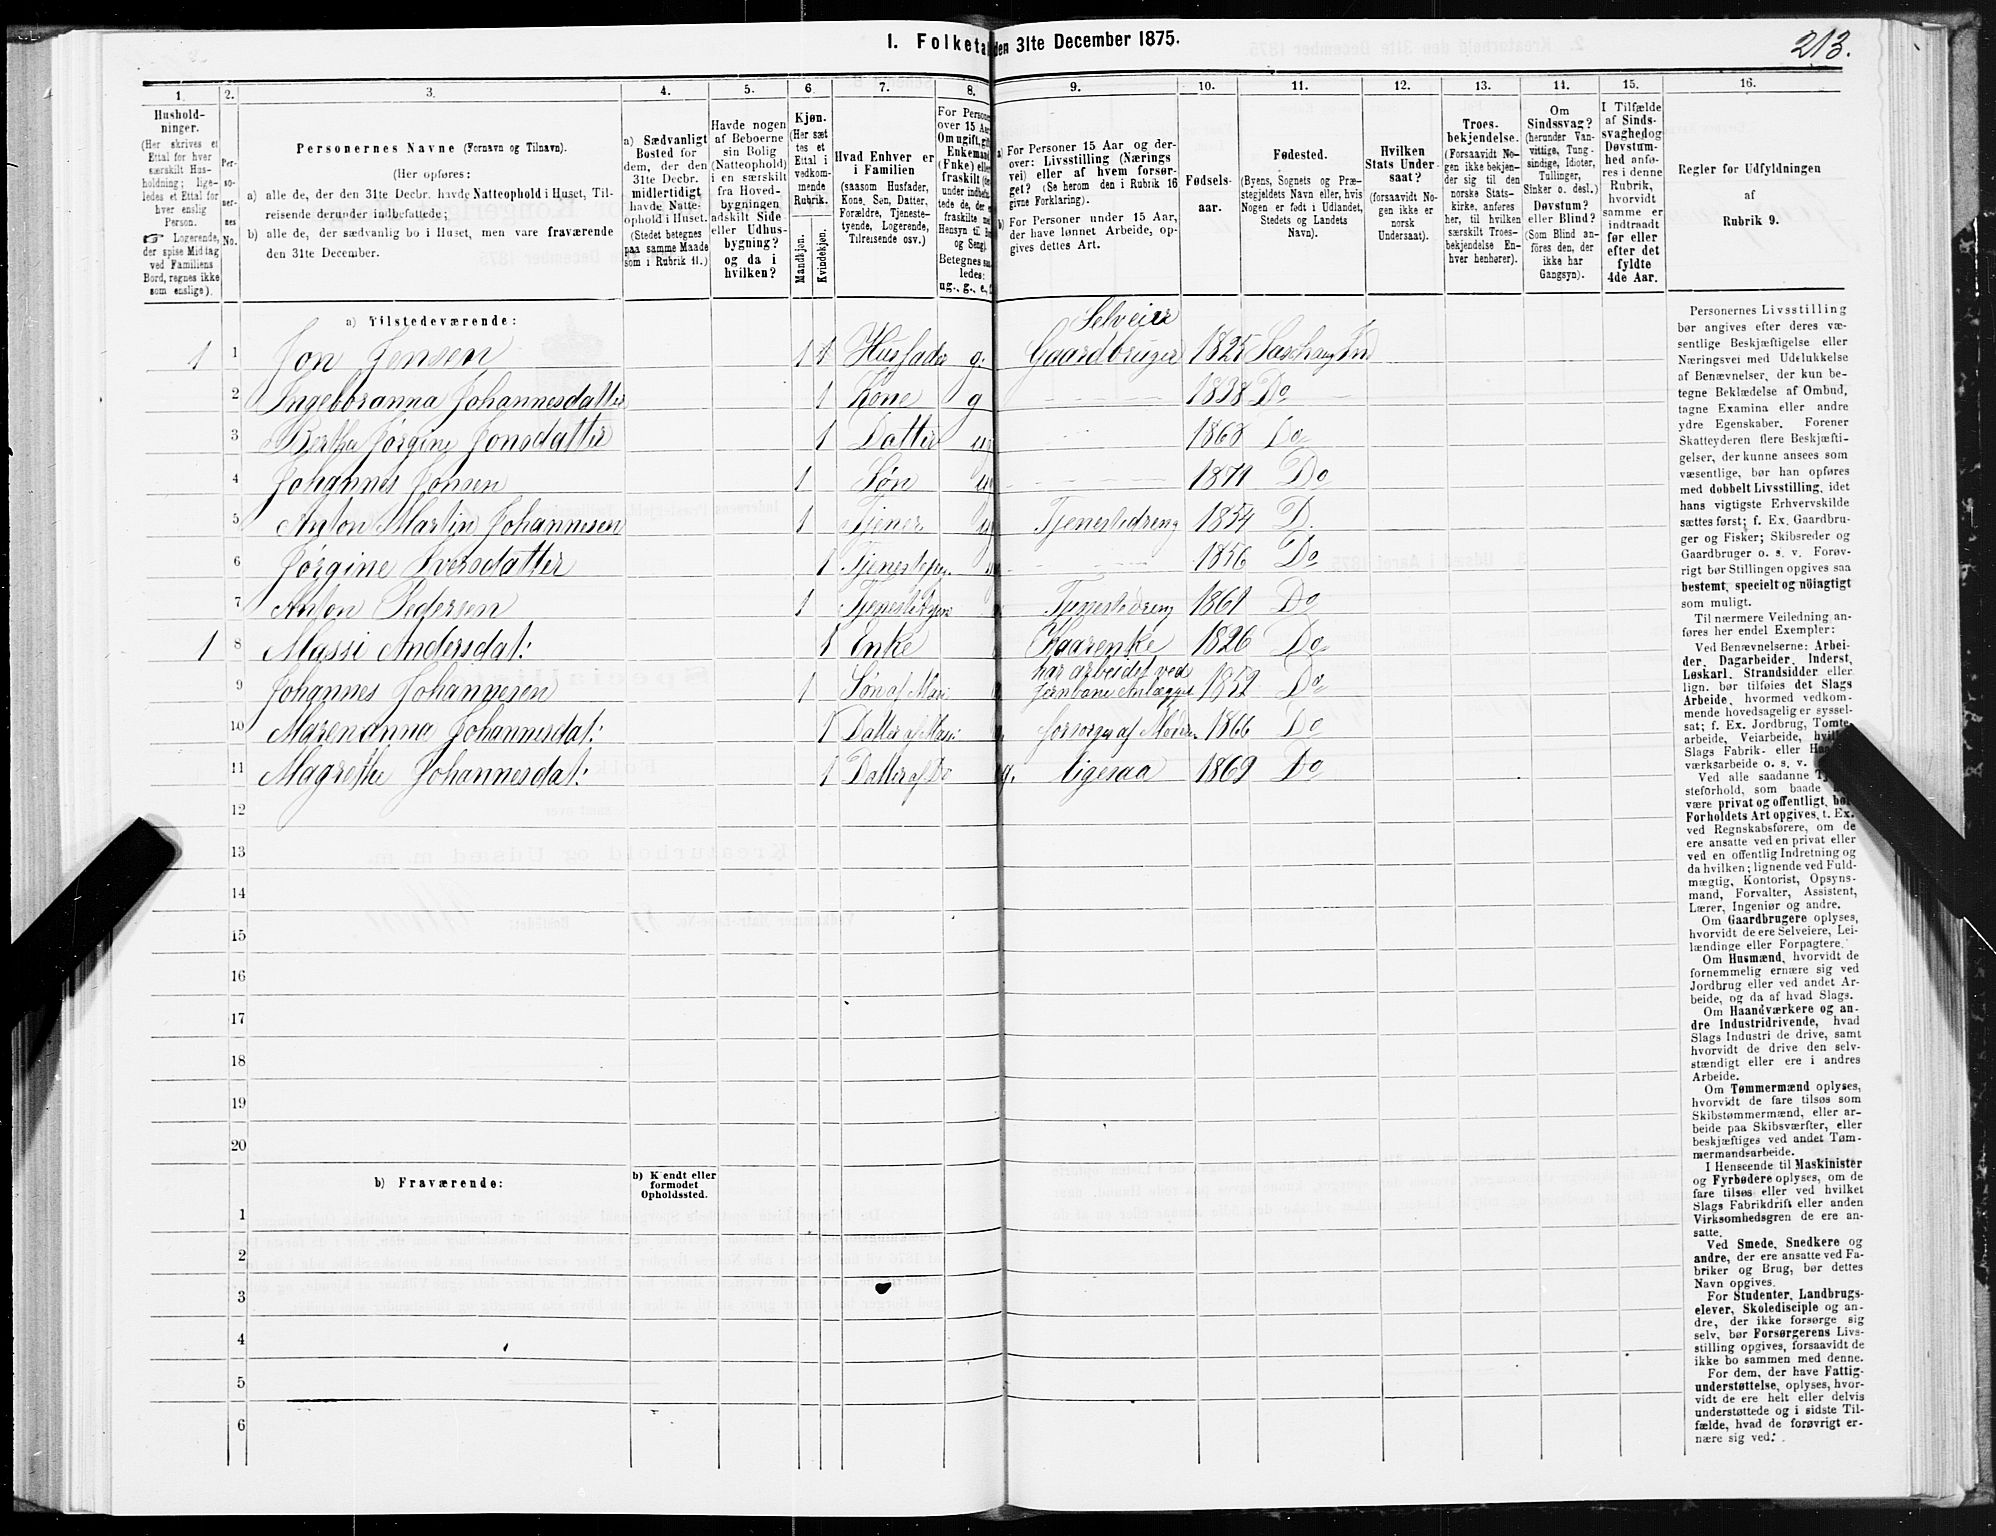 I. Folketal den 31te December 1875.
213.
1.
2.
3.
4.
5.
6.
7.
8.
9.
10.
11.
12.
13.
14.
15.
16.
Hushold-
ninger.
(Her skrives et
Ettal for hver
særskilt Hus-
holdning; lige-
ledes et Ettal for
hver enslig
Person.
☞ Logerende,
der spise Middag
ved Familiens
Bord, regnes ikke
som enslige).
Per-
so-
ner-
nes
No.
Personernes Navne (Fornavn og Tilnavn).
(Her opføres:
a) alle de, der den 31te Decbr. havde Natteophold i Huset, Til-
reisende derunder indbefattede;
b) alle de, der sædvanlig bo i Huset, men vare fraværende
den 31te December.
a) Sædvanligt
Bosted for
dem, der den
31te Decbr.
midlertidigt
havde Natte-
ophold i Huset.
(Stedet betegnes
paa samme Maade
som i Rubrik 11.)
Havde nogen
af Beboerne
sin Bolig
(Natteophold)
i en særskilt
fra Hoved-
bygningen
adskilt Side-
eller Udhus-
bygning?
og da i
hvilken?
Kjøn.
(Her sæt
tes et
Ettal i
vedkom-
mende
Rubrik.
Mandkjøn.
Kvindekjøn.
Hvad Enhver er
i Familien
(saasom Husfader,
Kone, Søn, Datter,
Forældre, Tjeneste-
tyende, Logerende,
Tilreisende osv.)
For Personer
over 15 Aar
Om ugift, gift,
Enkemand
(Enke) eller
fraskilt
a) For Personer 15 Aar og der-
over: Livsstilling (Nærings
vei) eller af hvem forsør-
get? (Se herom den i Rubrik 16
givne Forklaring).
b) For Personer under 15 Aar,
der have lønnet Arbeide, op-
gives dettes Art.
Fødsels-
aar.
Fødested.
(Byens, Sognets og Præ-
stegjeldets Navn eller, hvis
Nogen er født i Udlandet,
Stedets og Landets
Navn).
Hvilken
Stats Under-
saat?
(forsaavidt No-
gen ikke er
norsk
Undersaat).
Troes-
bekjendelse.
(Forsaavidt No-
gen ikke bekjen-
der sig til den
norske Stats-
kirke, anføres
her, til hvilken
særskilt Troes-
bekjendelse En-
hver henhører).
Om
Sindssvag?
(herunder Van-
vittige, Tung-
sindige, Idioter,
Tullinger,
Sinker o. desl.)
Døvstum?
eller Blind?
(Som Blind an-
føres den, der
ikke har
Gangsyn).
I Tilfælde
af Sinds-
svaghed og
Døvstum-
hed anfø-
res i denne
Rubrik,
hvorvidt
samme er
indtraadt
før eller
efter det
fyldte
4de Aar.
Regler for Udfyldningen
af
Rubrik 9.
a) Tilstedeværende:
Selveier
1 1 Jon Jensen 1 1 Husfader g. Gaardbruger 1825
2 Ingeboranna Johannesdatter 1 Kone g 1838 Do
3 Berthe Jørgine Jonsdatter 1 Datter ug 1868 Do
4 Johannes Jonsen 1 Søn ug 1871 Do
5 Anton Martin Johannesen 1 Tjener ug Tjenestedreng 1854 D.
6 Jørgine Iversdatter 1 1856 Do
7 Anton Pedersen 1 Tjenestedreng 1861 Do
1 8 Massi Andersdat: 1 Enke Kaarenke 1826 Do
har arbeidet ved
9 Johannes Johannesen 1 Søn af Mas Jernbane Anlægget 1852 Do
10 Marenanna Johannesdat: 1 Datter af Mas: forsørges af Moder 1866 Do
11 Magrethe Johannesdat: 1 Datter af Do g. ligesaa 1869 Do
12
13
14
15
16
17
18
19
20
b) Fraværende:
b) Kjendt eller
formodet
Opholdssted.
1
2
3
4
5
6
Personernes Livsstilling
bør angives efter deres væ-
sentlige Beskjæftigelse eller
Næringsvei med Udelukkelse
af Benævnelser, der kun be-
tegne Beklædelse af Ombud,
tagne Examina eller andre
ydre Egenskaber. Forener
Skatteyderen flere Beskjæfti-
gelser, der kunne ansees som
væsentlige, bør han opføres
med dobbelt Livsstilling, idet
hans vigtigste Erhvervskilde
sættes først; f. Ex. Gaardbru-
ger og Fisker; Skibsreder og
Gaardbruger o. s. v. Forøv-
rigt bør Stillingen opgives saa
bestemt, specielt og nöiagtigt
som muligt.
Til nærmere Veiledning an-
føres her endel Exempler:
Ved Benævnelserne: Arbei-
der, Dagarbeider, Inderst,
Løskarl, Strandsidder eller
lign. bør tilføies det Slags
Arbeide, hvormed vedkom-
mende hovedsagelig er syssel-
sat; f. Ex. Jordbrug, Tomte-
arbeide, Veiarbeide, hvilket
Slags Fabrik- eller Haand-
værksarbeide o. s. v.
Ved alle saadanne
steforhold, som baade
være privat og offentligt, bør
Forholdets Art opgives, t. Ex.
ved Regnskabsførere, om de
ere ansatte ved en privat eller
ved en offentlig Indretning og
da hvilken; lignende ved Fuld-
mægtig, Kontorist, Opsyns-
mand, Forvalter, Assistent,
Lærer, Ingeniør og andre.
Om Gaardbrugere oplyses,
hvorvidt de ere Selveiere, Lei-
lændinge eller Forpagtere.
Om Husmænd, hvorvidt de
fornemmelig ernære sig ved
Jordbrug eller ved andet Ar-
beide, og da af hvad Slags.
Om Haandværkere og an-
dre Industridrivende, hvad
Slags Industri de drive, samt
hvorvidt de drive den selv-
stændigt eller ere i andres
Arbeide.
Om Tømmermænd oplyses,
hvorvidt de fare tilsøs som
Skibstømmermænd, eller ar-
beide paa Skibsværfter, eller
beskjæftiges ved andet Tøm-
mermandsarbeide.
I Henseende til Maskinister
og Fyrbødere oplyses, om de
fare tilsøs eller ved hvilket
Slags Fabrikdrift eller anden
Virksomhedsgren de ere an-
satte.
Ved Smede, Snedkere og
andre, der ere ansatte ved Fa-
briker og Brug, bør dettes
Navn opgives.
For Studenter, Landbrugs-
elever, Skoledisciple og an-
dre, der ikke forsørge sig
selv, bør Forsørgerens Livs-
stilling opgives, forsaavidt de
ikke bo sammen med denne.
For dem, der have Fattig-
understøttelse, oplyses, hvor-
vidt de ere helt eller delvis
understøttede og i sidste Til-
fælde, hvad de forøvrigt er-
nære sig ved.